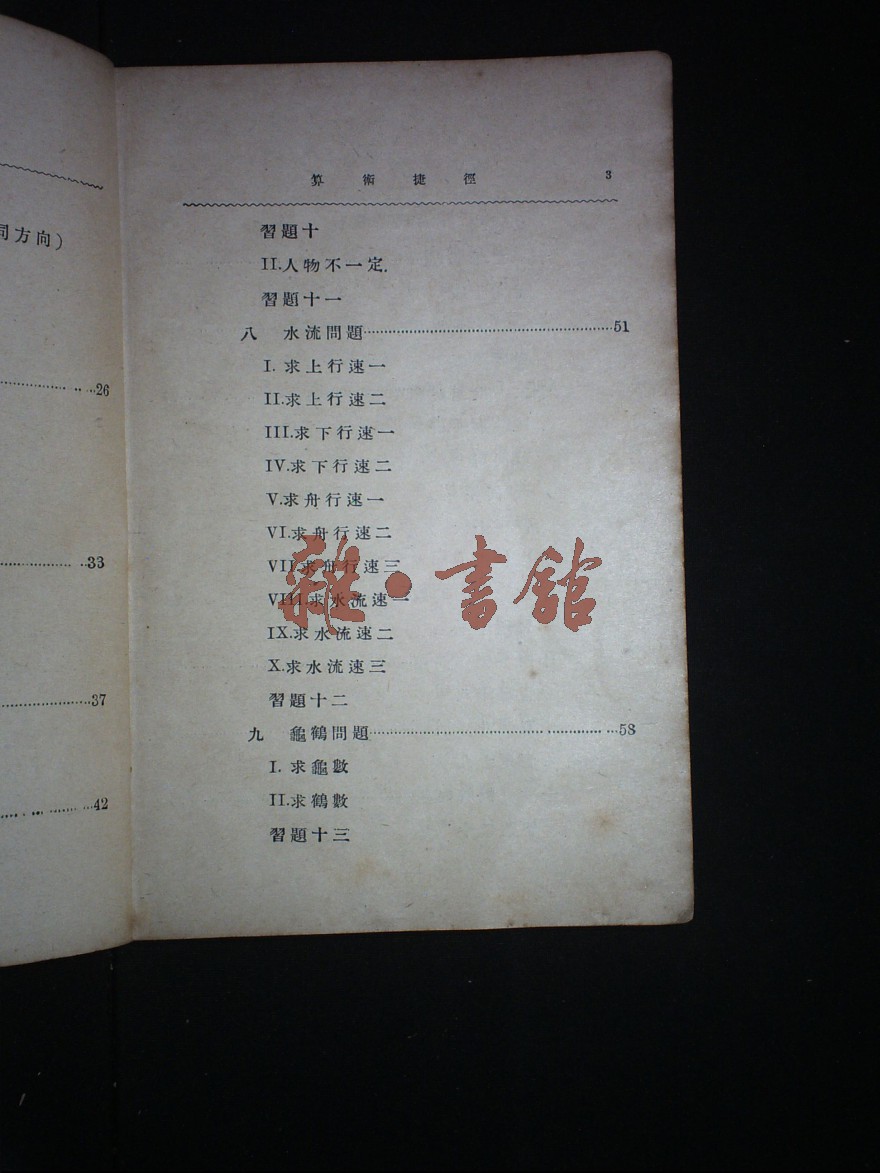 同方向）
26
33
37
42
算術捷徑 3
習題十
II.人物不一定.
習題十一
八 水流問題 51
I. 求上行速一
II.求上行速二
III.求下行速一
IV.求下行速二
V.求舟行速一
VI.求舟行速二
VII.求舟行速三
VIII.求水流速一
IX.求水流速二
X.求水流速三
習題十二
九 龜鶴問題 58
I. 求龜數
II.求鶴數
習題十三
雜·書館